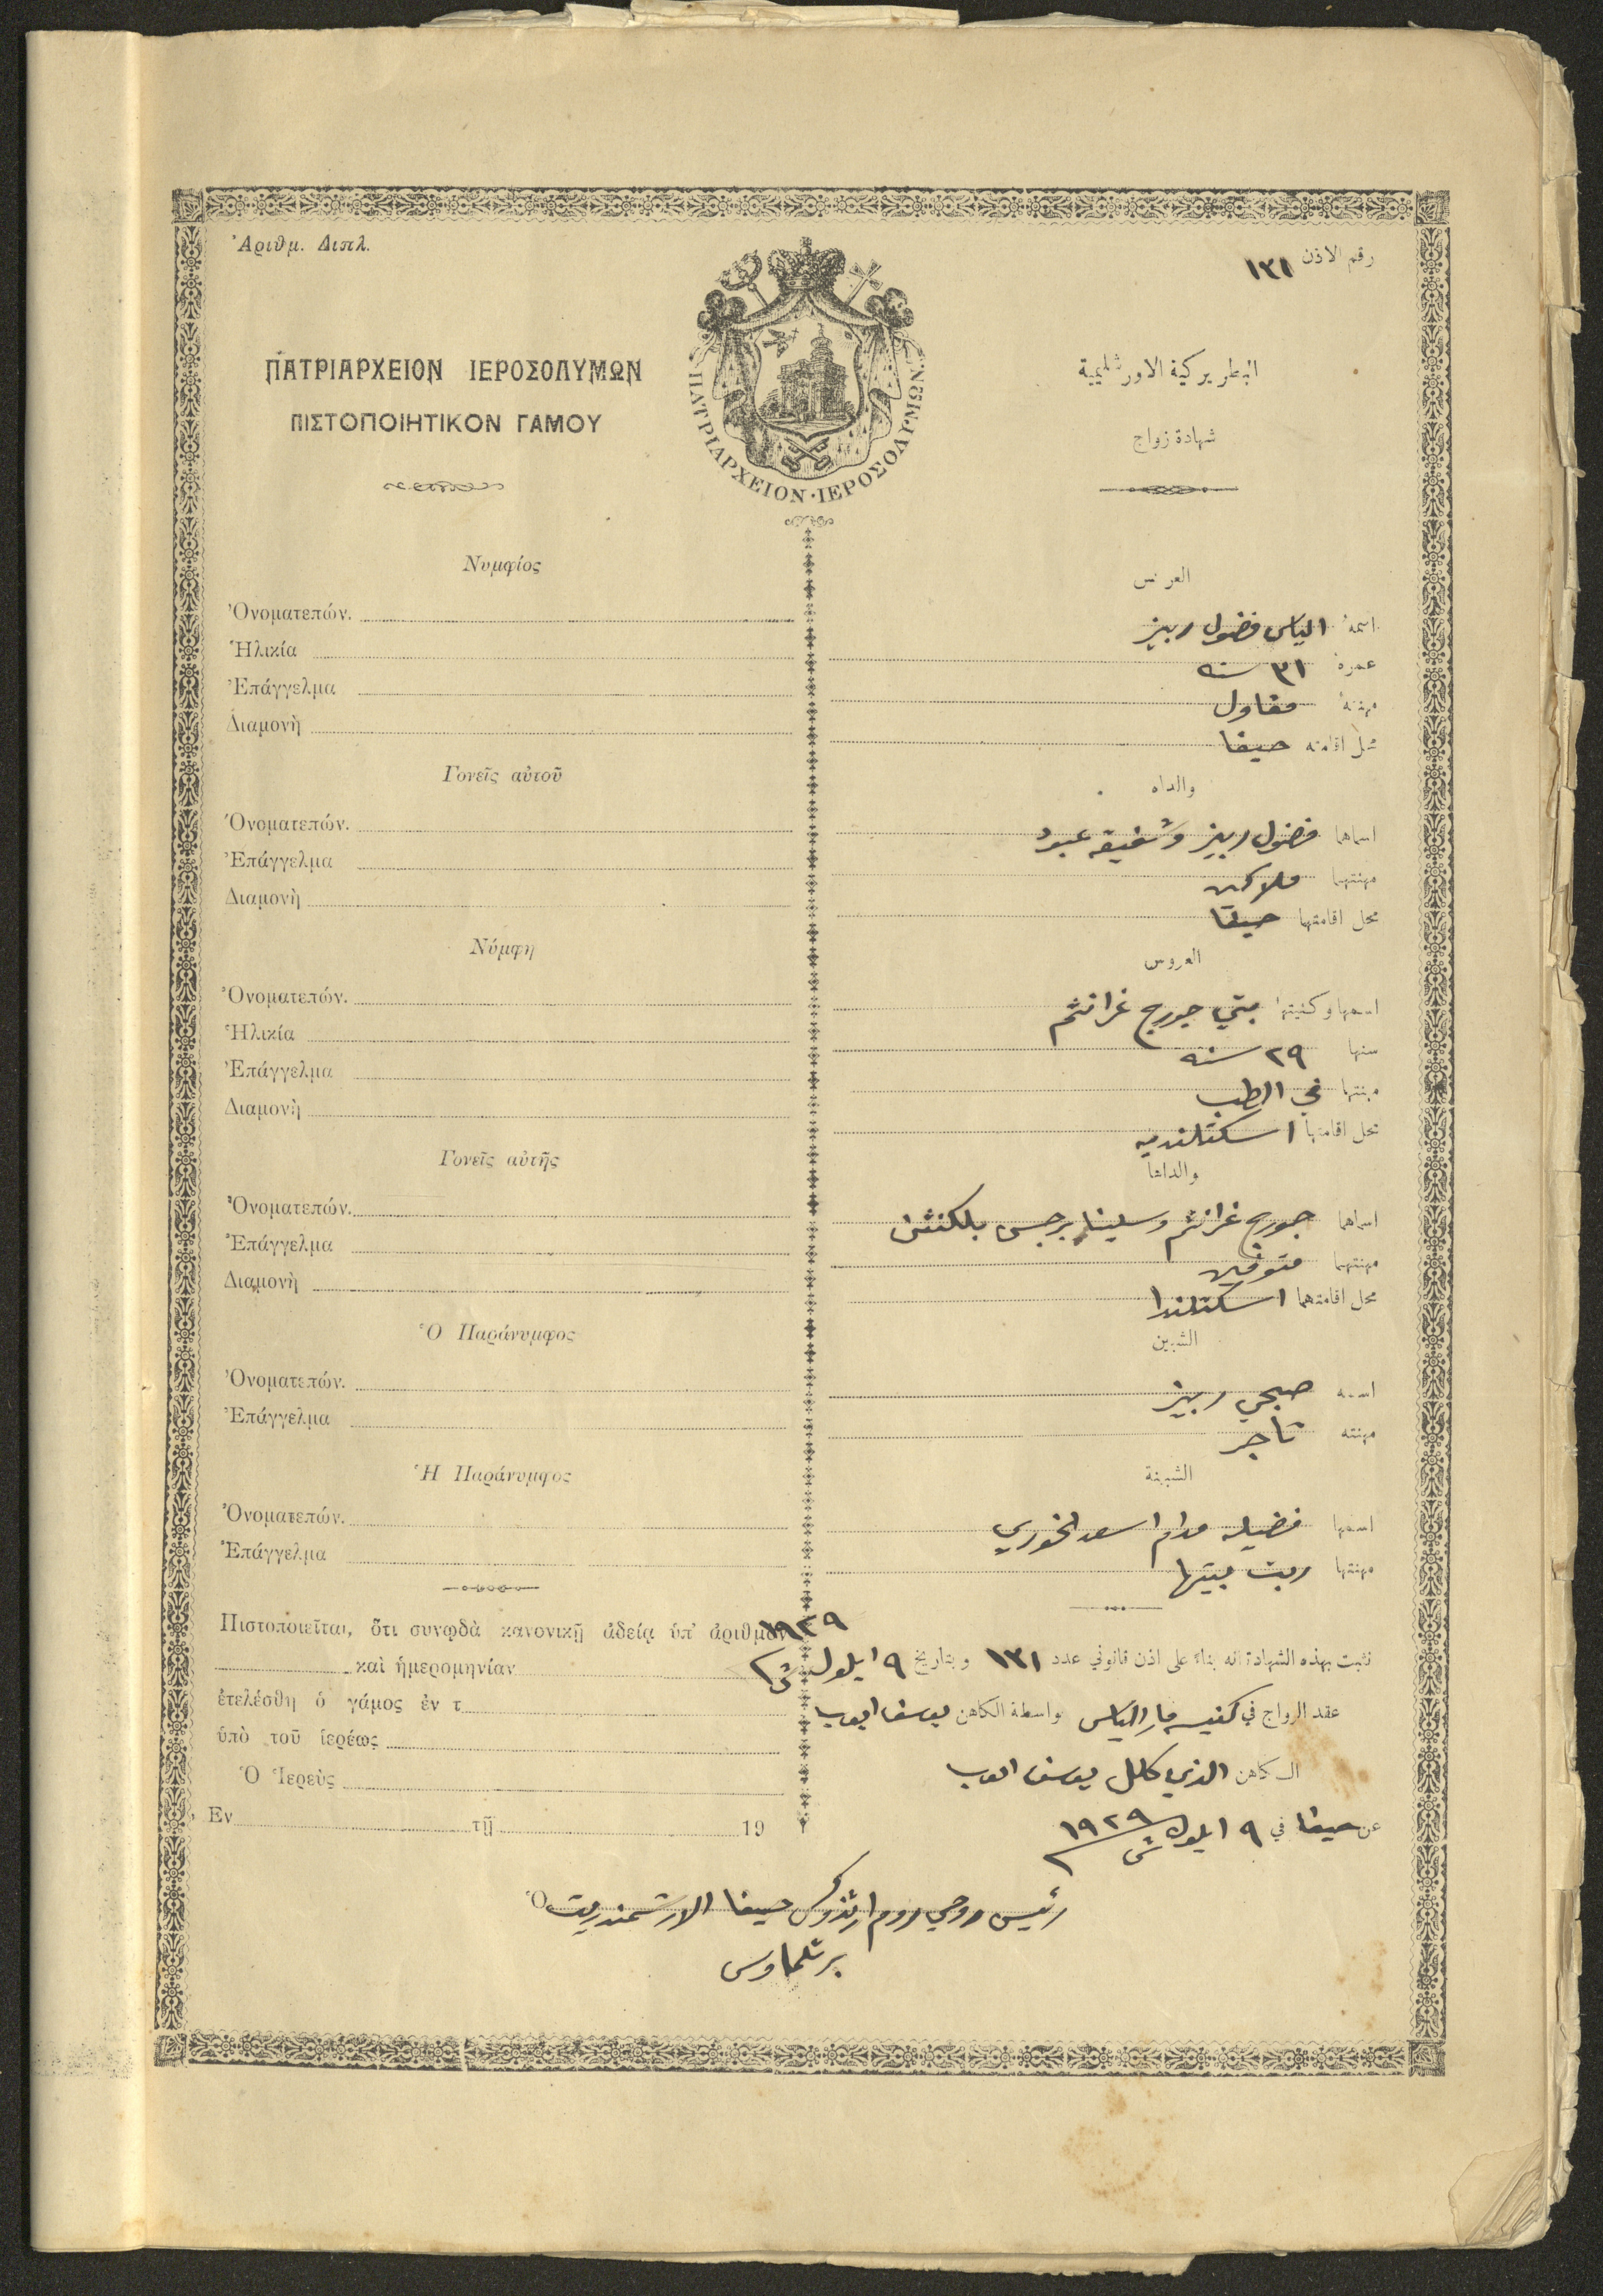 Ἀριθμ. Διπλ.
رقم الاذن ١٣١
ΠΑΤΡΙΑΡΧΕΙΟΝ ΙΕΡΟΣΟΛΥΜΩΝ
ΠΙΣΤΟΠΟΙΗΤΙΚΟΝ ΓΑΜΟΥ
ΠΑΤΡΙΑΡΧΕΙΟΝ·ΙΕΡΟΣΟΛΥΜΩΝ
البطريركية الاورشليمية
شهادة زواج
Νυμφίος
Ὀνοματεπών.
Ἡλικία
Ἐπάγγελμα
Διαμονὴ
Γονεῖς αὐτοῦ
Ὀνοματεπών.
Ἐπάγγελμα
Διαμονὴ
Νύμφη
Ὀνοματεπών.
Ἡλικία
Ἐπάγγελμα
Διαμονὴ
Γονεῖς αὐτῆς
Ὀνοματεπών.
Ἐπάγγελμα
Διαμονὴ
Ὁ Παράνυμφος
Ὀνοματεπών.
Ἐπάγγελμα
Ἡ Παράνυμφος
Ὀνοματεπών.
Ἐπάγγελμα
Πιστοποιεῖται, ὅτι συνῳδὰ κανονικῇ ἀδείᾳ ὑπ' ἀριθμὸν
καὶ ἡμερομηνίαν
ἐτελέσθη ὁ γάμος ἐν τ
ὑπὸ τοῦ ἱερέως
Ὁ Ἱερεὺς
Ἐν τῇ 19
العريس
اسمهُ الياس فضول ربيز
عمرهُ ٣١ سنه
مهنتهُ مقاول
محل اقامته حيفا
والداه
اسماهما فضول ربيز وشفيقه عبود
مهنتهما ملاكين
محل اقامتهما حيفا
العروس
اسمها وكنيتها بتي جورج غرانتم
سنها ٢٩ سنه
مهنتها في الطب
محل اقامتها اسكتلنديه
والداها
اسماهما جورج غرانتم وسلينا برجس بلكنتن
مهنتهما متوفين
محل اقامتهما اسكتلندا
الشبين
اسمه صبحي ربيز
مهنته تاجر
الشبينة
اسمها فضيله مدام اسعد الخوري
مهنتها ربت بيتها
نثبت بهذه الشهادة انه بناءً على اذن قانوني عدد ١٣١ وبتاريخ ٩ ايلول ش ١٩٢٩
عقد الزواج في كنيسة مار الياس بواسطة الكاهن يوسف ايوب
الكاهن الذي كلل يوسف ايوب
عن حيفا في ٩ ايلول ش ١٩٢٩
Ὁ
رئيس روحي روم ارثذوكس حيفا الارشمندريت
برتلماوس